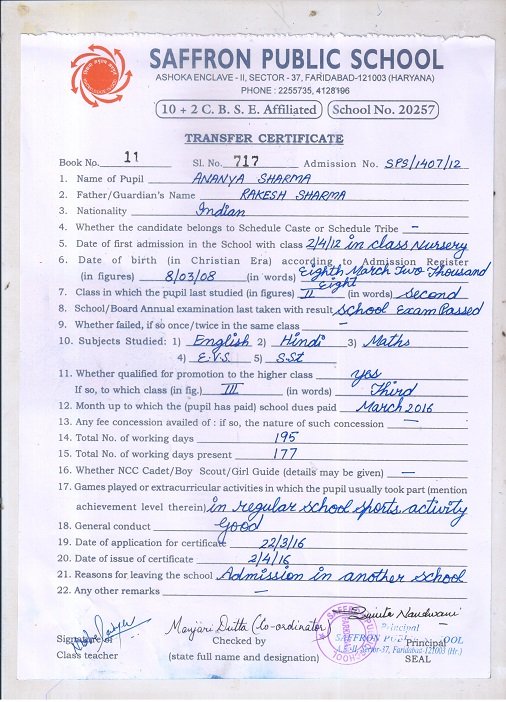 SAFFRON PUBLIC SCHOOL
ASHOKA ENCLAVE - II, SECTOR - 37, FARIDABAD-121003 (HARYANA)
PHONE : 2255735, 4128196
10 + 2 C. B. S. E. Affiliated School No. 20257
TRANSFER CERTIFICATE
Book No. 11 Sl. No. 717 Admission No. SPS/1407/12
1. Name of Pupil ANANYA SHARMA
2. Father/Guardian's Name RAKESH SHARMA
3. Nationality Indian
4. Whether the candidate belongs to Schedule Caste or Schedule Tribe —
5. Date of first admission in the School with class 2/4/12 in class Nursery
6. Date of birth (in Christian Era) according to Admission Register
(in figures) 8/03/08 (in words) Eighth March Two Thousand Eight
7. Class in which the pupil last studied (in figures) II (in words) Second
8. School/Board Annual examination last taken with result School Exam Passed
9. Whether failed, if so once/twice in the same class —
10. Subjects Studied: 1) English 2) Hindi 3) Maths
4) E.V.S 5) S.St
11. Whether qualified for promotion to the higher class yes
If so, to which class (in fig.) III (in words) Third
12. Month up to which the (pupil has paid) school dues paid March 2016
13. Any fee concession availed of : if so, the nature of such concession —
14. Total No. of working days 195
15. Total No. of working days present 177
16. Whether NCC Cadet/Boy Scout/Girl Guide (details may be given) —
17. Games played or extracurricular activities in which the pupil usually took part (mention
achievement level therein) in regular school sports activity
18. General conduct Good
19. Date of application for certificate 22/3/16
20. Date of issue of certificate 2/4/16
21. Reasons for leaving the school Admission in another school
22. Any other remarks —
Manjari Dutta (Co-ordinator)
Principal
Signature of Checked by SAFFRON PUBLIC SCHOOL Principal
Class teacher (state full name and designation) A.E.-II, Sector-37, Faridabad-121003 (Hr.)
SEAL